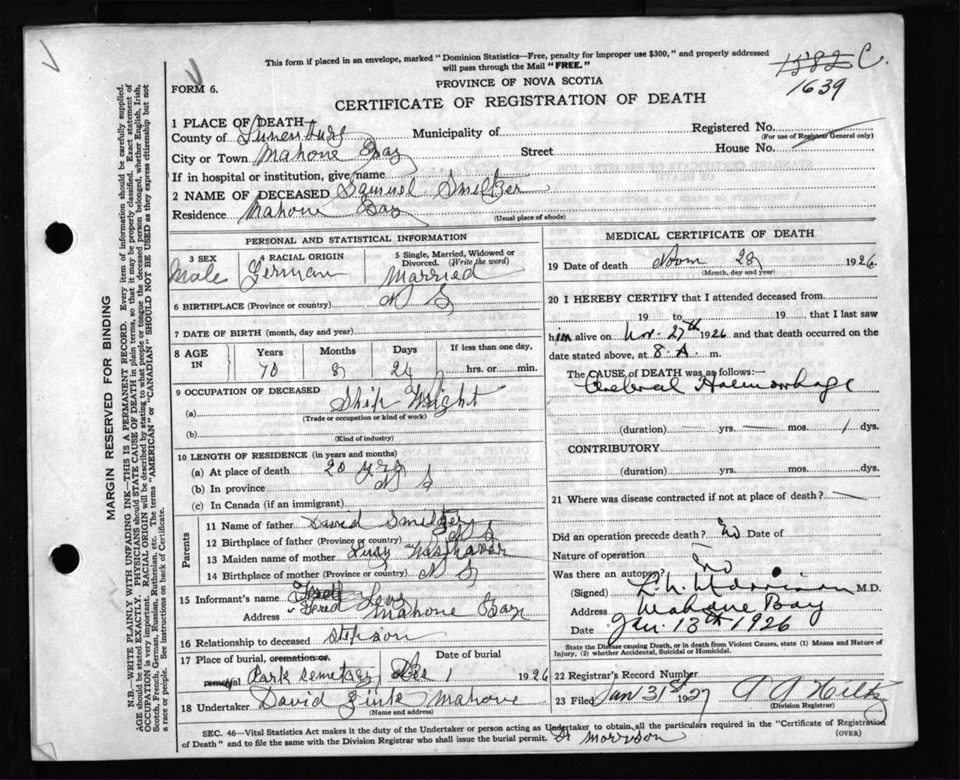 This form if placed in an envelope, marked "Dominion Statistics—Free, penalty for improper use $300," and properly addressed
will pass through the Mail "FREE."
1382 C.
1639
PROVINCE OF NOVA SCOTIA
FORM 6.
CERTIFICATE OF REGISTRATION OF DEATH
1 PLACE OF DEATH—
County of Lunenburg Municipality of Registered No.
(For use of Registrar General only)
City or Town Mahone Bay Street House No.
If in hospital or institution, give name
2 NAME OF DECEASED Samuel Smeltzer
Residence Mahone Bay (Usual place of abode)
PERSONAL AND STATISTICAL INFORMATION
3 SEX Male
4 RACIAL ORIGIN German
5 Single, Married, Widowed or Divorced. (Write the word) Married
6 BIRTHPLACE (Province or country) N S
7 DATE OF BIRTH (month, day and year)
8 AGE IN Years Months Days If less than one day,
70 8 24 hrs. or min.
9 OCCUPATION OF DECEASED
(a) Ship Wright
(Trade or occupation or kind of work)
(b)
(Kind of industry)
10 LENGTH OF RESIDENCE (in years and months)
(a) At place of death 20 yrs
(b) In province N S
(c) In Canada (if an immigrant)
Parents
11 Name of father David Smeltzer
12 Birthplace of father (Province or country) N S
13 Maiden name of mother Lucy
14 Birthplace of mother (Province or country) N S
15 Informant's name
Fred Levy
Address Mahone Bay
16 Relationship to deceased Stepson
17 Place of burial, cremation or removal Date of burial
Park Semetary Dec 1 1926
18 Undertaker David Zink Mahone
(Name and address)
MEDICAL CERTIFICATE OF DEATH
19 Date of death 28 1926
(Month, day and year)
20 I HEREBY CERTIFY that I attended deceased from
19 to 19 that I last saw
him alive on Nov. 27th 1926 and that death occurred on the
date stated above, at 8. A. m.
The CAUSE of DEATH was as follows:—
Cerebral Haemorrhage
(duration) yrs. mos. 1 dys.
CONTRIBUTORY
(duration) yrs. mos. dys.
21 Where was disease contracted if not at place of death?
Did an operation precede death? no Date of
Nature of operation
Was there an autopsy? no
(Signed) M.D.
Address Mahone Bay
Date Jan. 13th 1926
State the Disease causing Death, or in death from Violent Causes, state (1) Means and Nature of
Injury, (2) whether Accidental, Suicidal or Homicidal.
22 Registrar's Record Number
23 Filed Jan 31st 1927
(Division Registrar)
SEC. 46—Vital Statistics Act makes it the duty of the Undertaker or person acting as Undertaker to obtain all the particulars required in the "Certificate of Registration
of Death" and to file the same with the Division Registrar who shall issue the burial permit.
Dr Morrison
(OVER)
MARGIN RESERVED FOR BINDING
N.B.—WRITE PLAINLY WITH UNFADING INK—THIS IS A PERMANENT RECORD. Every item of information should be carefully supplied.
AGE should be stated EXACTLY. PHYSICIANS should STATE CAUSE OF DEATH in plain terms, so that it may be properly classified. Exact statement of
OCCUPATION is very important. RACIAL ORIGIN will be described by stating to what people or tongue the deceased person belonged, whether English, Irish,
Scotch, French, German, Russian, Ruthenian, etc. The terms "AMERICAN" or "CANADIAN" SHOULD NOT BE USED as they express citizenship but not
a race or people. See instructions on back of Certificate.